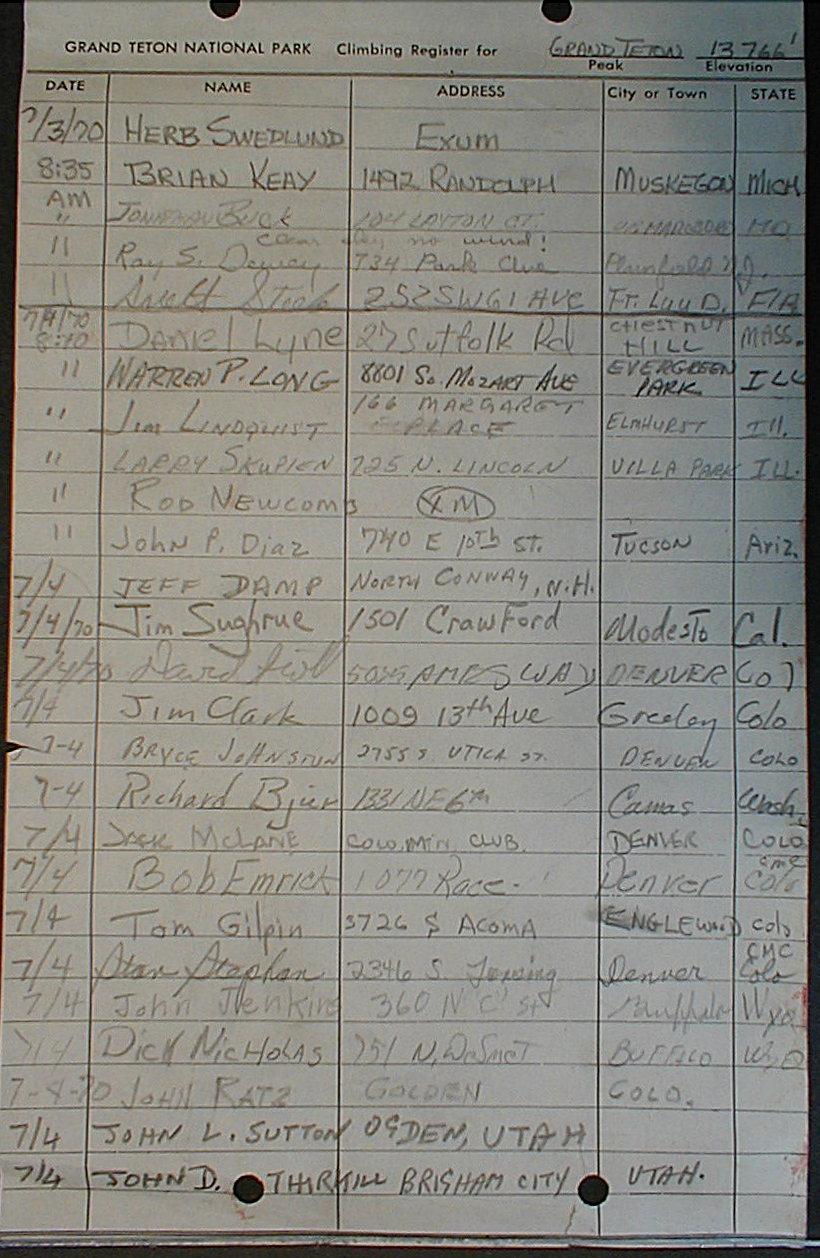 GRAND TETON NATIONAL PARK Climbing Register for GRAND TETON 13766'
Peak Elevation
DATE NAME ADDRESS City or Town STATE
7/3/70 HERB SWEDLUND EXUM
8:35 BRIAN KEAY 1492 RANDOLPH MUSKEGON MICH
AM
" JONATHAN BUCK 104 LAYTON CT. MO
clear day no wind!
" Ray S. 734 Park Ave Plainfield N.J.
" 252 SW 61 AVE FT. LAUD. FlA
7/4/70 DANIEL Lyne 27 Suffolk Rd CHESTNUT MASS.
8:20 HILL
" WARREN P. LONG 8801 So. MOZART AVE EVERGREEN PARK ILL
" Jim LINDQUIST 166 MARGARET PLACE ELMHURST Ill.
" LARRY SKUPIEN 225 N. LINCOLN VILLA PARK ILL.
" ROD NEWCOMB XM
" John P. Diaz 740 E 10th ST. TUCSON Ariz.
7/4 JEFF DAMP NORTH CONWAY, N.H.
7/4/70 Jim Sughrue 1501 CrawFord Modesto Cal.
7/4/70 David AMES WAY DENVER CO
7/4 Jim Clark 1009 13th Ave Greeley Colo
7-4 BRYCE JOHNSTON 2755 S. UTICA ST. DENVER COLO
7-4 Richard 1331 NE 6th Camas Wash.
7/4 JACK MCLANE COLO. MTN. CLUB. DENVER COLO
CMC
7/4 Bob Emrick 1077 Race. Denver Colo
7/4 Tom Gilpin 3726 S ACOMA ENGLEWOOD Colo
CMC
7/4 Stan Stephan 2346 S. Denver Colo
7/4 John Jenkins 360 N "C" St Buffalo Wyo
7/4 Dick NICHOLAS 751 N. DeSmet BUFFLO WYO
7-4-70 JOHN RATZ GOLDEN COLO.
7/4 JOHN L. SUTTON OGDEN, UTAH
7/4 JOHN D. THIRKILL BRIGHAM CITY UTAH.